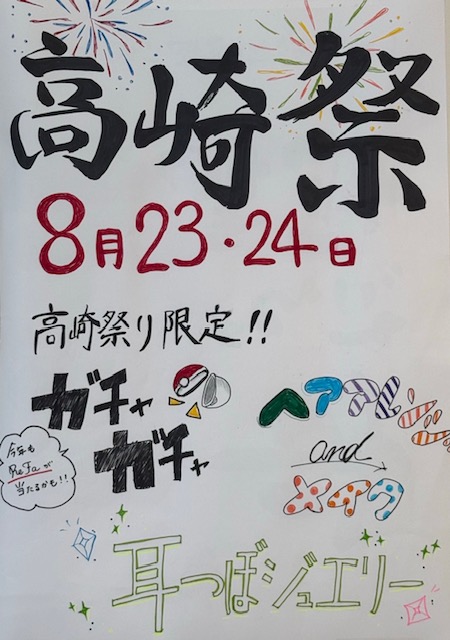 高崎祭
8月23・24日
高崎祭り限定!!
ガチャ
ガチャ
今年も
ReFaが
当たるかも!!
ヘアアレンジ
and
メイク
耳つぼジュエリー